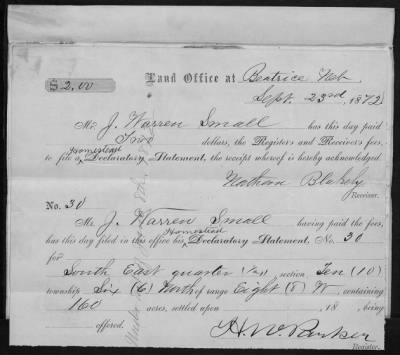 $2.00
Land Office at Beatrice Neb
Sept. 23rd, 1872
Mr. J. Warren Small has this day paid
Two dollars, the Registers and Receivers fees,
Homestead
to file a Declaratory Statement, the receipt whereof is hereby acknowledged.
Nathan Blakely
Receiver.
No. 30
Mr. J. Warren Small having paid the fees,
Homestead
has this day filed in this office his Declaratory Statement, No. 30
for
South East quarter section Ten (10)
township Six (6) North of range Eight (8) W. containing
160 acres, settled upon , 18 , being
offered.
H. W. Parker
Register.